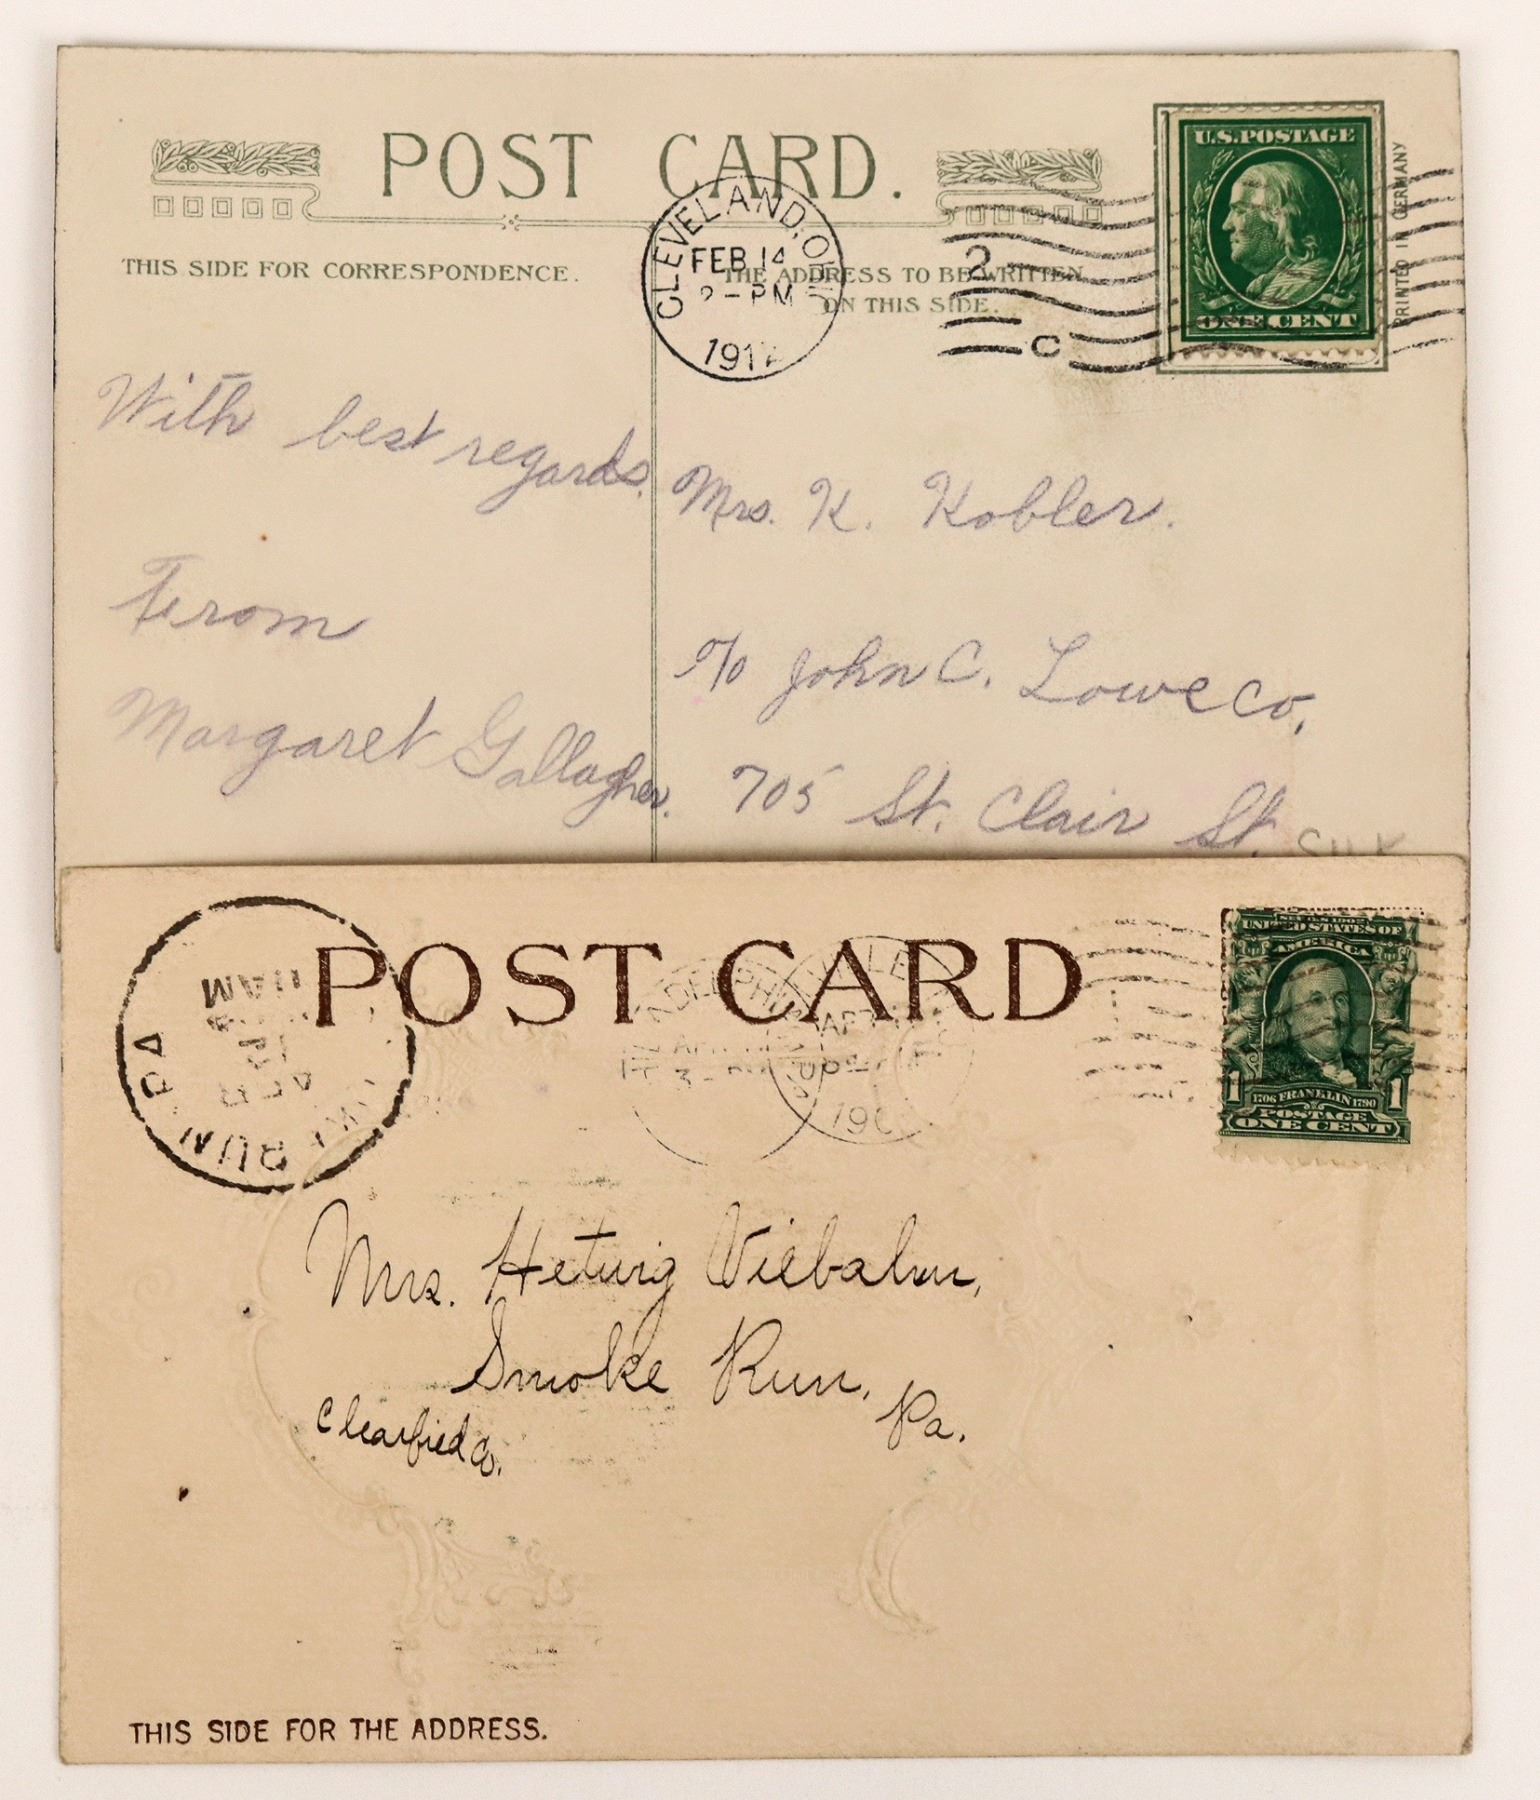 POST CARD.
THIS SIDE FOR CORRESPONDENCE.
THE ADDRESS TO BE WRITTEN
ON THIS SIDE.
CLEVELAND, O
FEB 14
2-PM
191
2
C
U.S. POSTAGE
ONE CENT
PRINTED IN GERMANY
With best regards.
From
Margaret Gallagher.
Mrs. K. Kobler.
c/o John C. Lowe Co.
705 St. Clair St.
POST CARD
RUN PA
190
SERIES 1902
UNITED STATES OF
AMERICA
1 1706 FRANKLIN 1790 1
POSTAGE
ONE CENT
Mrs. Hetwig Viebahn,
Smoke Run,
Pa.
Clearfield Co.
THIS SIDE FOR THE ADDRESS.